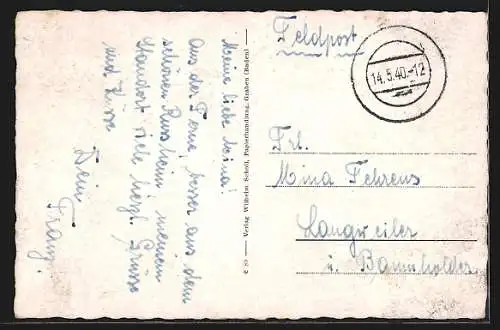 Meine liebe Mina!
Aus der Ferne, besser aus dem
schönen Russheim, meinem
Standort viele herzl. Grüsse
und Küsse
Dein
Franz.
E 89 — Verlag Wilhelm Scholl, Papierhandlung, Graben (Baden)
Feldpost
14.5.40.-12
Frl.
Mina Fehrens
Langweiler
ü. Baumholder